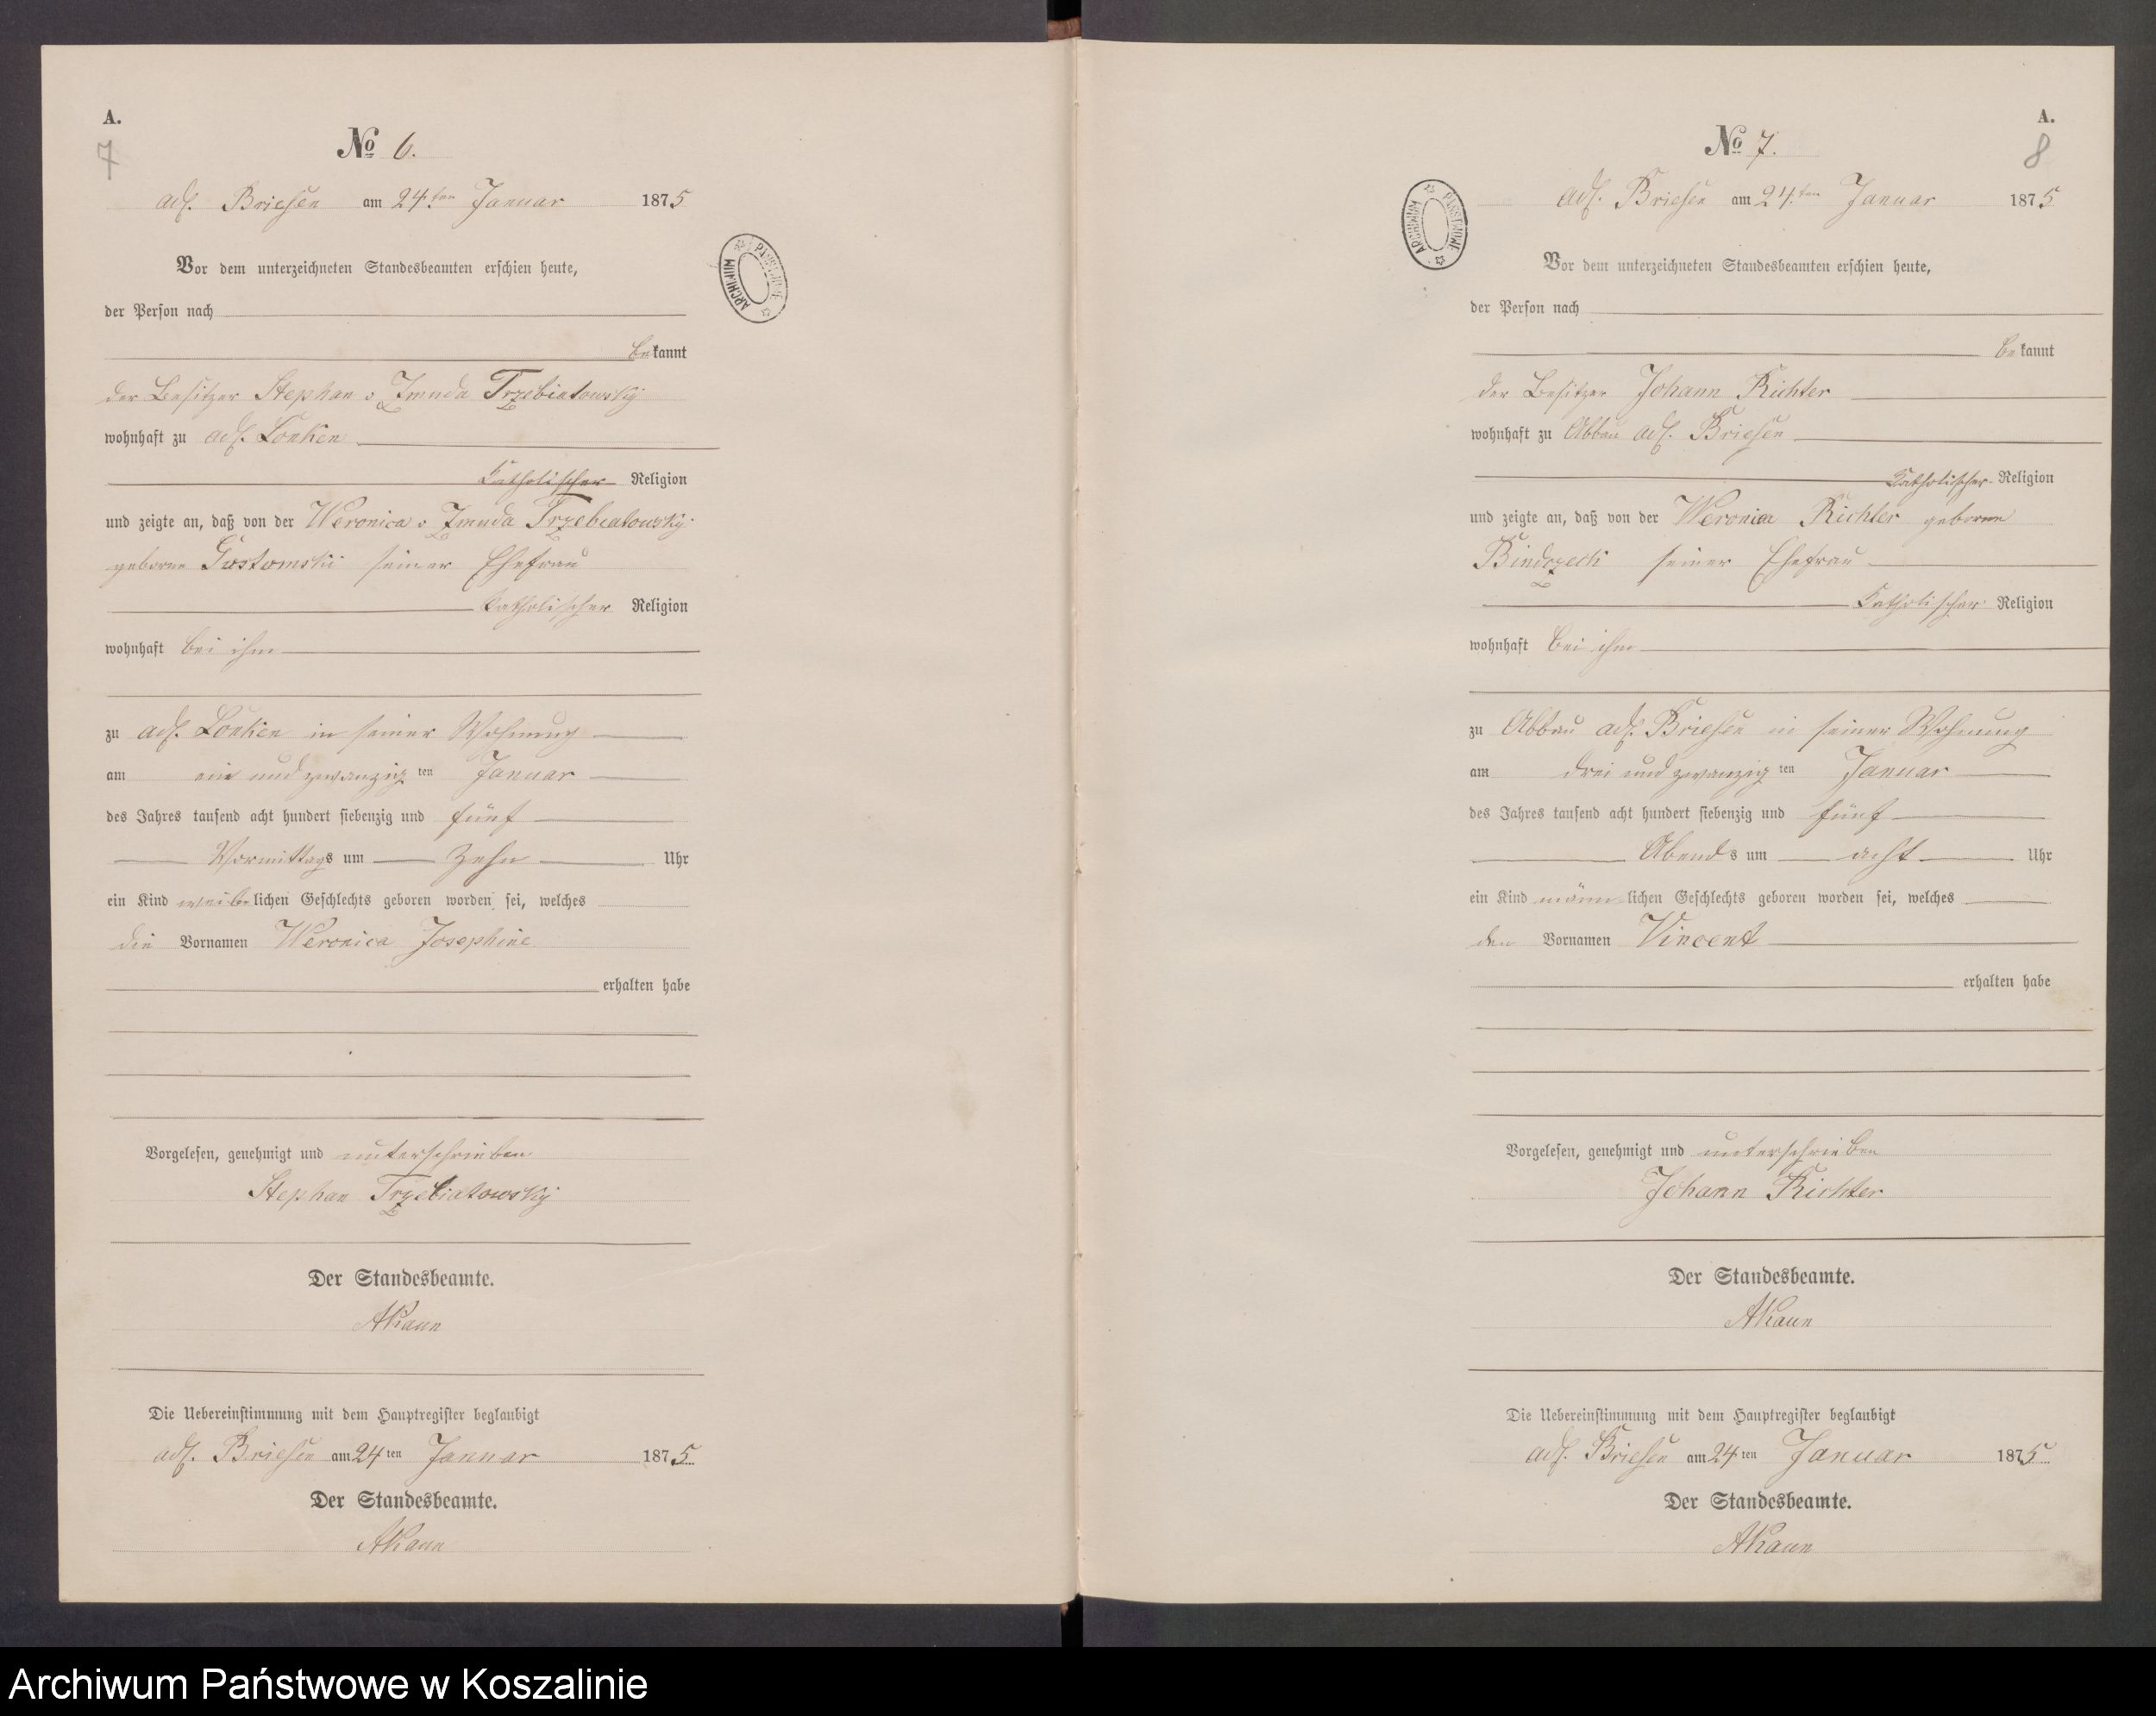 A.
7
No 6.
adl. Briesen am 24.ten Januar 1875
Vor dem unterzeichneten Standesbeamten erschien heute,
der Person nach
bekannt
der Besitzer Stephan v Zmuda Trzebiatowsky
wohnhaft zu adl. Lonken
katholischer Religion
und zeigte an, daß von der Weronica v. Zmuda Trzebiatowsky
geborne Gostomski seiner Ehefrau
katholischer Religion
wohnhaft bei ihm
zu adl. Lonken in seiner Wohnung
am ein und zwanzig ten Januar
des Jahres tausend acht hundert siebenzig und fünf
Vormittags um zehn Uhr
ein Kind weiblichen Geschlechts geboren worden sei, welches
die Vornamen Weronica Josephine
erhalten habe
Vorgelesen, genehmigt und unterschrieben
Stephan Trzebiatowsky
Der Standesbeamte.
AKaun
Die Uebereinstimmung mit dem Hauptregister beglaubigt
adl. Briesen am 24 ten Januar 1875
Der Standesbeamte.
AKaun
ARCHIWUM PAŃSTWOWE
A.
8
No 7.
adl. Briesen am 24.ten Januar 1875
Vor dem unterzeichneten Standesbeamten erschien heute,
der Person nach
bekannt
der Besitzer Johann Richter
wohnhaft zu Abbau adl. Briesen
katholischer Religion
und zeigte an, daß von der Weronica Richter geborne
Bindczeck seiner Ehefrau
katholischer Religion
wohnhaft bei ihm
zu Abbau adl. Briesen in seiner Wohnung
am drei und zwanzig ten Januar
des Jahres tausend acht hundert siebenzig und fünf
Abends um acht Uhr
ein Kind männlichen Geschlechts geboren worden sei, welches
den Vornamen Vincent
erhalten habe
Vorgelesen, genehmigt und unterschrieben
Johann Richter
Der Standesbeamte.
AKaun
Die Uebereinstimmung mit dem Hauptregister beglaubigt
adl. Briesen am 24 ten Januar 1875
Der Standesbeamte.
AKaun
ARCHIWUM PAŃSTWOWE
Archiwum Państwowe w Koszalinie